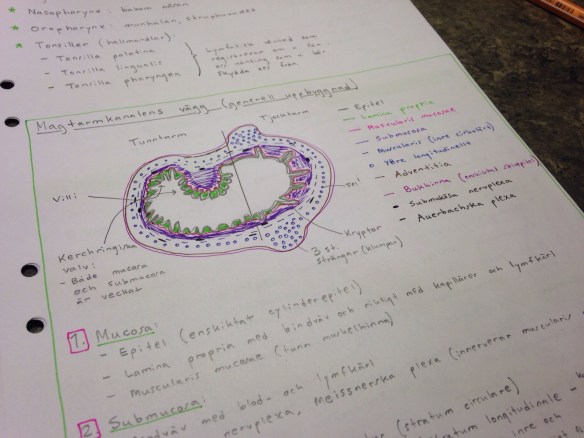 * Nasopharynx: bakom näsan
* Oropharynx: munhålan,
* Tonsiller (halsmandlar):
- Tonsilla palatina
- Tonsilla lingualis
- Tonsilla pharyngea
Lymfatisk vävnad som
registrerar om
skydda oss från
Magtarmkanalens vägg (generell uppbyggnad)
Tunntarm
Tjocktarm
Villi
Kerchringiska
valv:
- Både mucosa
och submucosa
är veckat
Kryptor
3 st.
strängar (klumpar)
- Epitel
- Lamina propria
- Muscularis mucosae
- Submucosa
- Muscularis (inre cirkulärt)
o Yttre longitudinellt
- Adventitia
- Bukhinna (enkelt skivepitel)
- Submukösa nervplexa
- Auerbachska plexa
1. Mucosa:
- Epitel (enskiktat cylinderepitel)
- Lamina propria med bindväv och rikligt med kapillärer och lymfkärl
- Muscularis mucosae (tunn muskelhinna)
2. Submucosa:
bindväv med blod- och lymfkärl
nervplexa, meissnerska plexa (innerverar muscularis
(stratum circulare)
stratum longitudinale
inre och